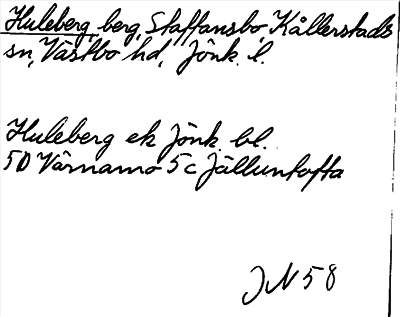 Huleberg, berg, Staffansbo Kållerstads
sn, Västbo hd, Jönk. l.
Huleberg ek Jönk. bl.
5D Värnamo 5c Jälluntofta
JN 58